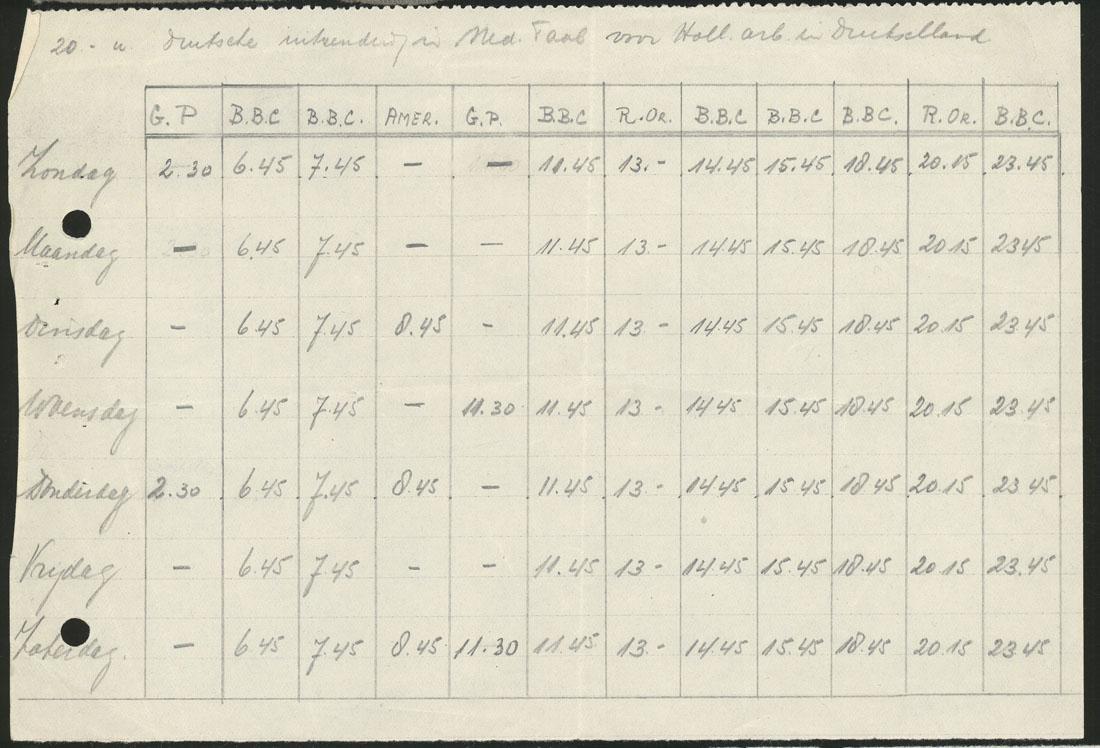 20.- u. Deutsche uitzending in Ned. Taal voor Holl. arb. in Duitschland
G. P B.B.C B.B.C. AMER. G.P. B.B.C R.OR. B.B.C B.B.C B.BC. R.OR. B.B.C.
Zondag 2.30 6.45 7.45 — — 11.45 13.- 14.45 15.45 18.45 20.15 23.45
Maandag — 6.45 7.45 — — 11.45 13.- 14.45 15.45 18.45 20.15 23.45
Dinsdag — 6.45 7.45 8.45 - 11.45 13.- 14.45 15.45 18.45 20.15 23.45
Woensdag — 6.45 7.45 — 11.30 11.45 13.- 14.45 15.45 18.45 20.15 23.45
Donderdag 2.30 6.45 7.45 8.45 — 11.45 13.- 14.45 15.45 18.45 20.15 23.45
Vrijdag — 6.45 7.45 - - 11.45 13- 14.45 15.45 18.45 20.15 23.45
Zaterdag. — 6.45 7.45 8.45 11.30 11.45 13.- 14.45 15.45 18.45 20.15 23.45